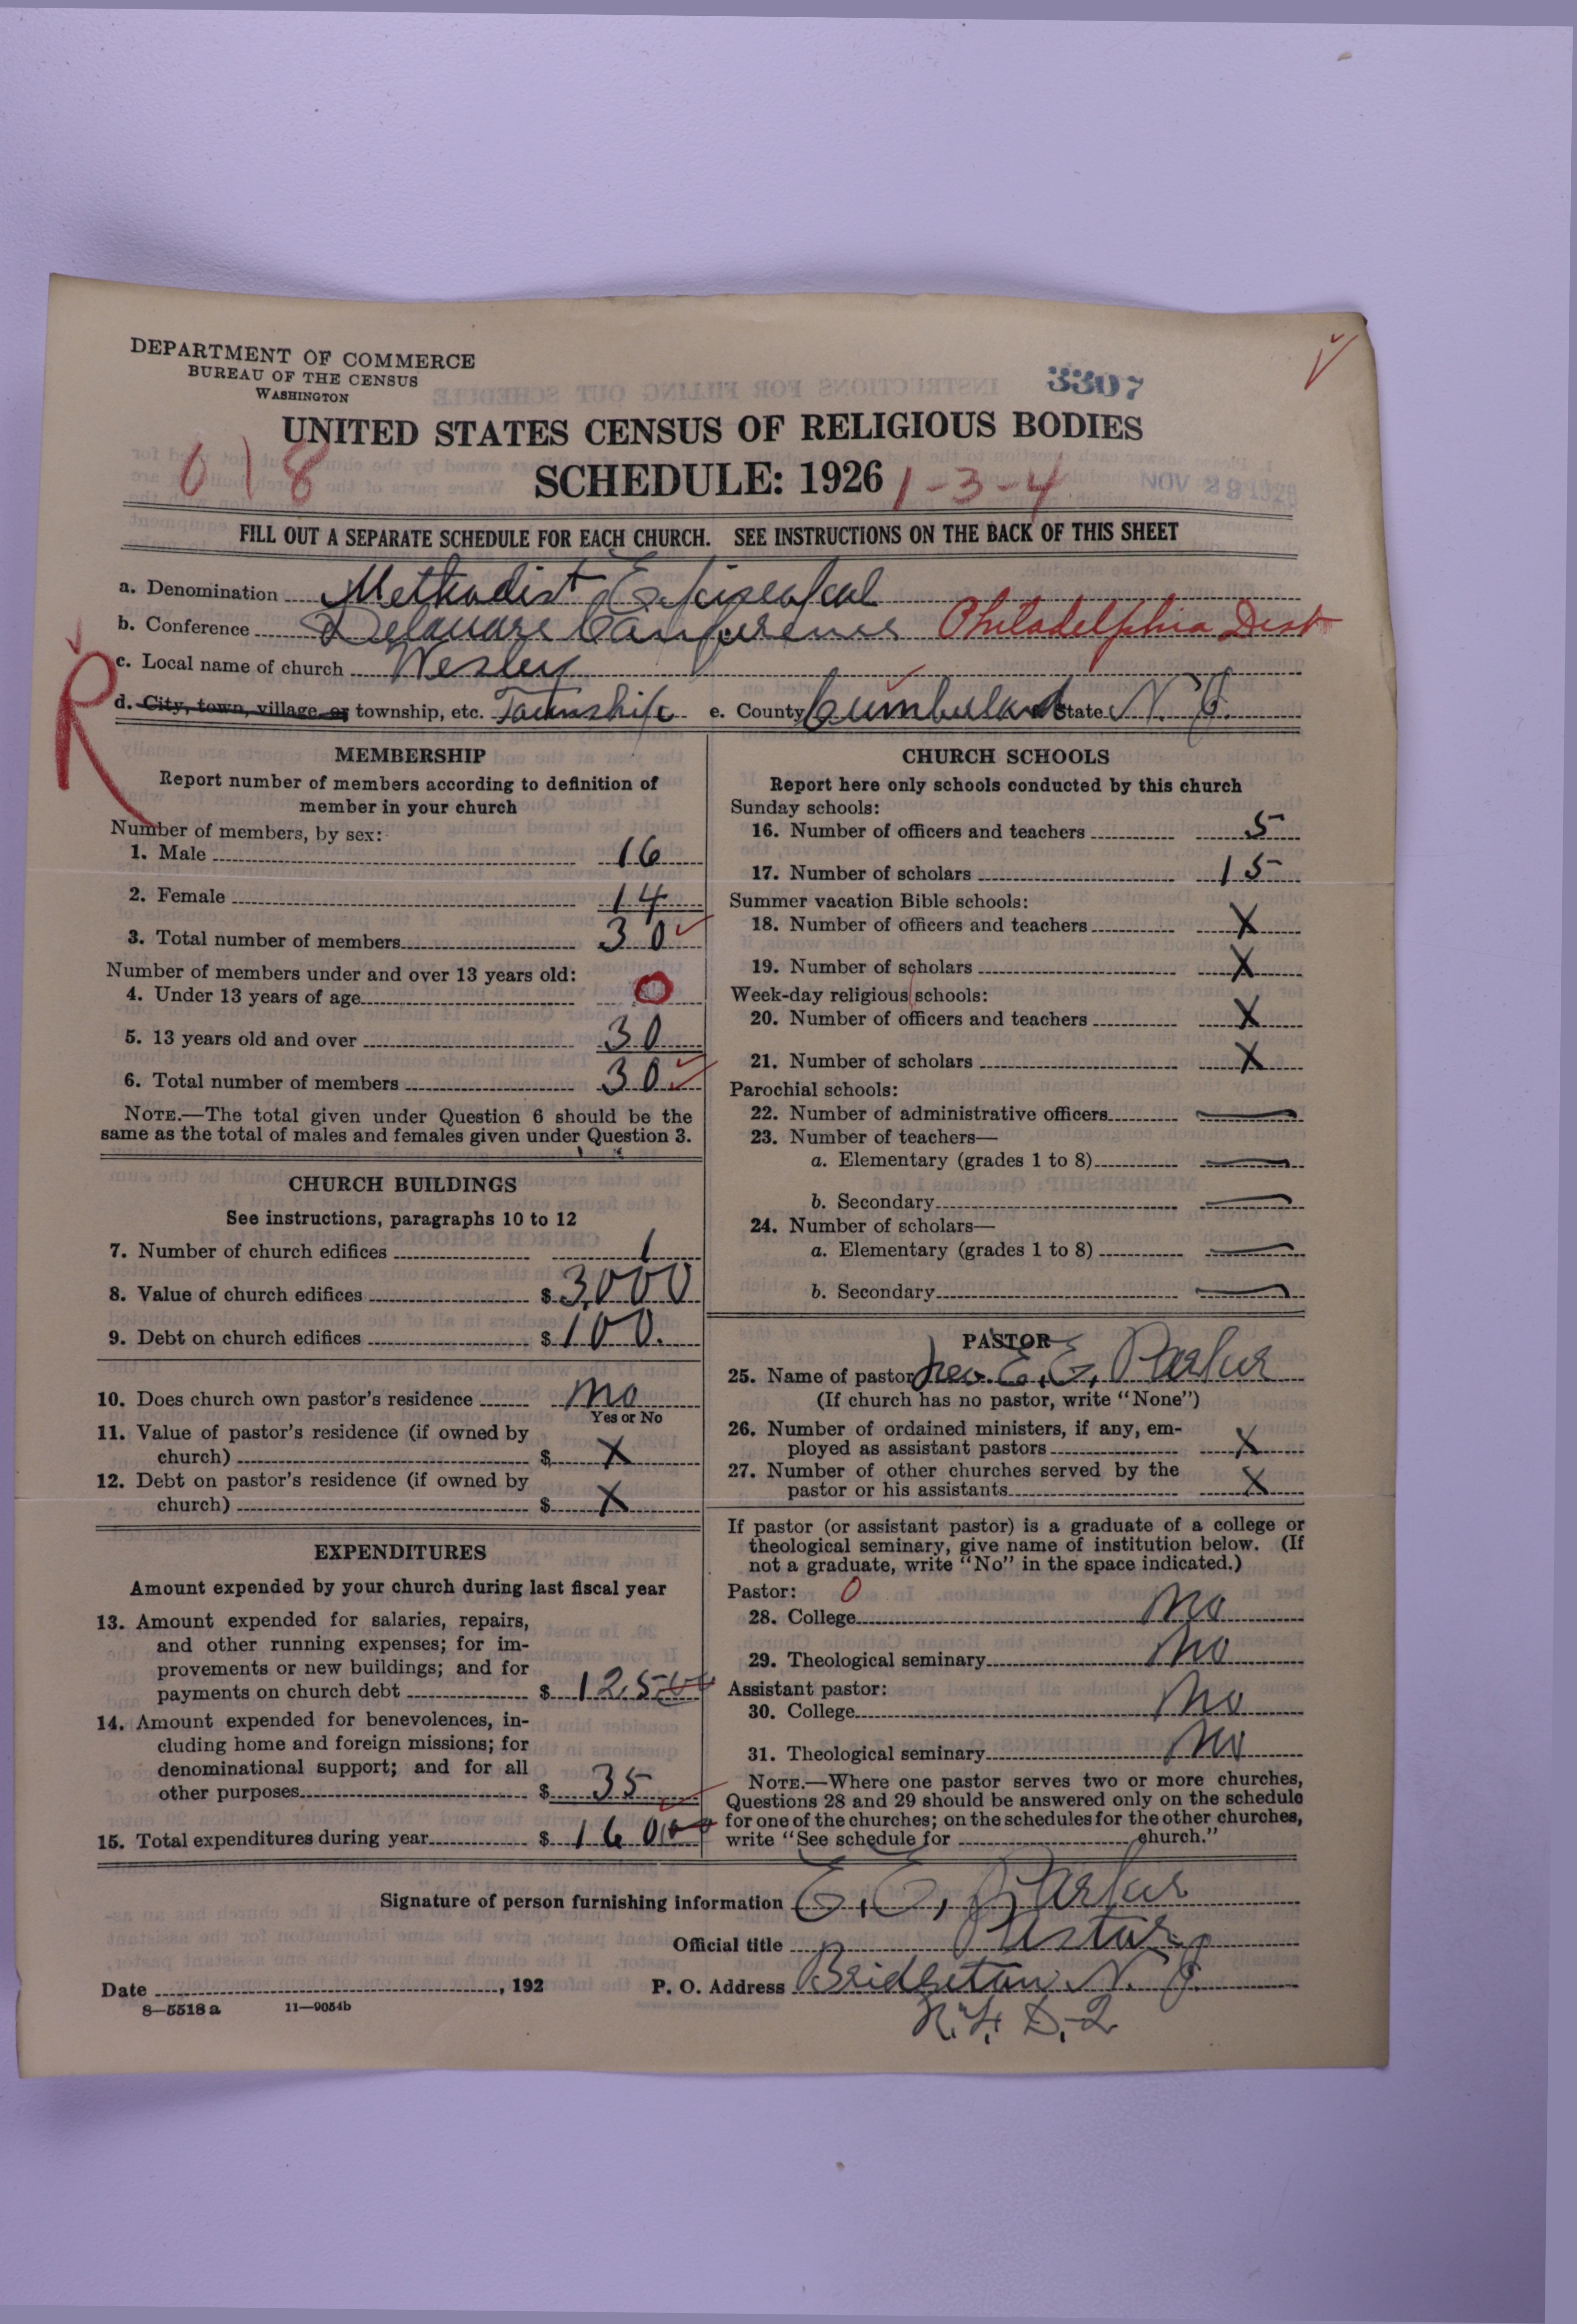 DEPARTMENT OF COMMERCE
BUREAU OF THE CENSUS
WASHINGTON
3307
UNITED STATES CENSUS OF RELIGIOUS BODIES
018
SCHEDULE: 1926
1-3-4
NOV 29 1926
FILL OUT A SEPARATE SCHEDULE FOR EACH CHURCH. SEE INSTRUCTIONS ON THE BACK OF THIS SHEET
a. Denomination Methodist Episcopal
b. Conference Delaware Conference Philadelphia Dist
c. Local name of church Wesley
R
d. City, town, village, or township, etc. Township e. County Cumberland State N. J.
MEMBERSHIP
Report number of members according to definition of
member in your church
Number of members, by sex:
1. Male 16
2. Female 14
3. Total number of members 30
Number of members under and over 13 years old:
4. Under 13 years of age 0
5. 13 years old and over 30
6. Total number of members 30
NOTE.—The total given under Question 6 should be the
same as the total of males and females given under Question 3.
CHURCH BUILDINGS
See instructions, paragraphs 10 to 12
7. Number of church edifices 1
8. Value of church edifices $ 3,000
9. Debt on church edifices $ 100.
10. Does church own pastor's residence no
Yes or No
11. Value of pastor's residence (if owned by
church) $ X
12. Debt on pastor's residence (if owned by
church) $ X
EXPENDITURES
Amount expended by your church during last fiscal year
13. Amount expended for salaries, repairs,
and other running expenses; for im-
provements or new buildings; and for
payments on church debt $ 125
14. Amount expended for benevolences, in-
cluding home and foreign missions; for
denominational support; and for all
other purposes $ 35
15. Total expenditures during year $ 160
CHURCH SCHOOLS
Report here only schools conducted by this church
Sunday schools:
16. Number of officers and teachers 5
17. Number of scholars 15
Summer vacation Bible schools:
18. Number of officers and teachers X
19. Number of scholars X
Week-day religious schools:
20. Number of officers and teachers X
21. Number of scholars X
Parochial schools:
22. Number of administrative officers
23. Number of teachers—
a. Elementary (grades 1 to 8)
b. Secondary
24. Number of scholars—
a. Elementary (grades 1 to 8)
b. Secondary
PASTOR
25. Name of pastor Rev. E. E. Parker
(If church has no pastor, write "None")
26. Number of ordained ministers, if any, em-
ployed as assistant pastors X
27. Number of other churches served by the
pastor or his assistants X
If pastor (or assistant pastor) is a graduate of a college or
theological seminary, give name of institution below. (If
not a graduate, write "No" in the space indicated.)
Pastor: 0
28. College no
29. Theological seminary no
Assistant pastor:
30. College no
31. Theological seminary no
NOTE.—Where one pastor serves two or more churches,
Questions 28 and 29 should be answered only on the schedule
for one of the churches; on the schedules for the other churches,
write "See schedule for church."
Signature of person furnishing information E. E. Parker
Official title Pastor
Date , 192 P. O. Address Bridgeton N. J.
8—5518a 11—9054b
R. F. D. 2